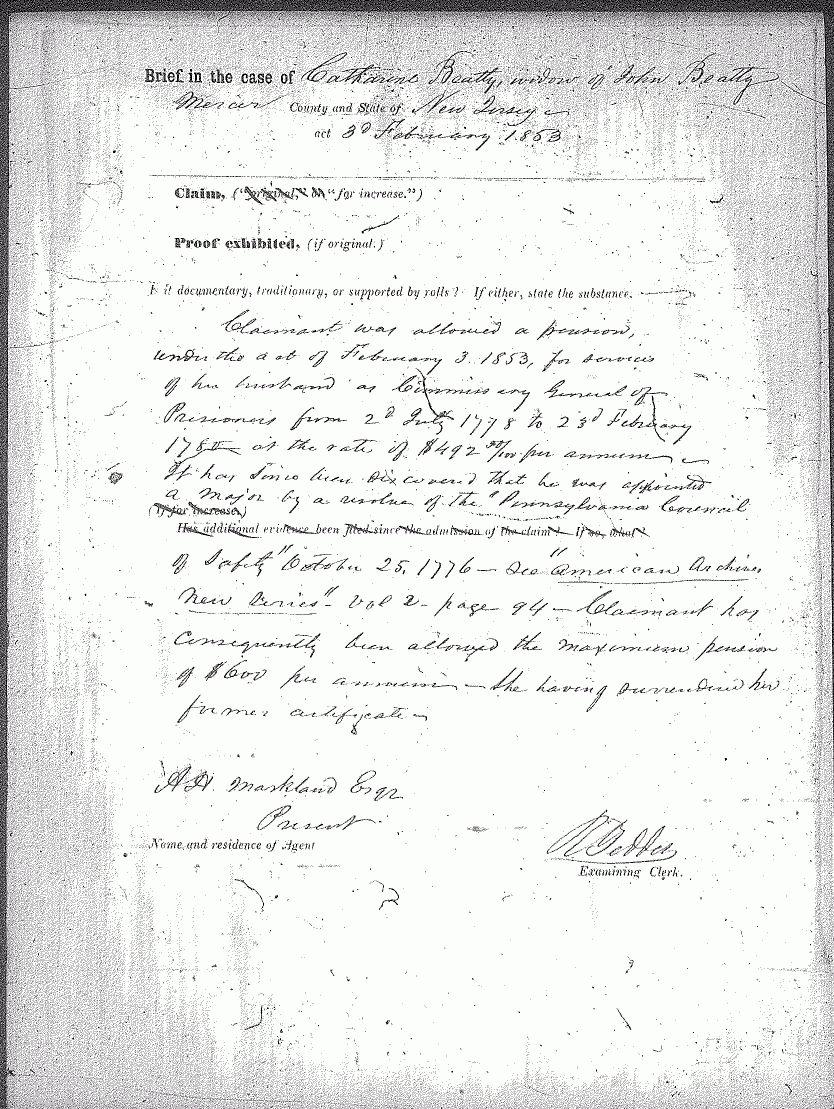 Brief in the case of Catharine Beatty, widow of John Beatty
Mercer County and State of New Jersey
act 3d February 1853
Claim, ("original," or "for increase.")
Proof exhibited, (if original.)
Is it documentary, traditionary, or supported by rolls? If either, state the substance.
Claimant was allowed a pension,
under the act of February 3. 1853, for services
of her husband as Commissary General of
Prisoners from 2d July 1778 to 23d February
at the rate of $492 per annum
It has since been discovered that he was appointed
a Major by a resolve of the "Pennsylvania Council
(If for increase.)
Has additional evidence been filed since the admission of the claim? If so, what?
of Safety" October 25, 1776 - See "American Archives
New Series" - Vol 2 - page 94 - Claimant has
consequently been allowed the maximum pension
of $600 per annum - she having surrendered her
former certificate -
A.H. Markland Esqr
Present
Name and residence of Agent
Geddes
Examining Clerk.